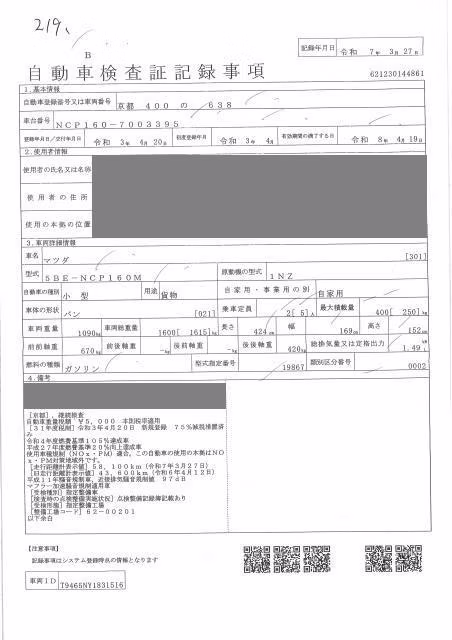 219、
B
自動車検査証記録事項
記録年月日 令和 7年 3月27日
621230144861
1.基本情報
自動車登録番号又は車両番号 京都 400 の 638
車台番号 NCP160-7003395
登録年月日/交付年月日 令和 3年 4月20日 初度登録年月 令和 3年 4月 有効期間の満了する日 令和 8年 4月19日
2.使用者情報
使用者の氏名又は名称
使用者の住所
使用の本拠の位置
3.車両詳細情報
車名 マツダ [301]
型式 5BE-NCP160M 原動機の型式 1NZ
自動車の種別 小型 用途 貨物 自家用・事業用の別 自家用
車体の形状 バン [021] 乗車定員 2[ 5]人 最大積載量 400[ 250]kg
車両重量 1090kg 車両総重量 1600[ 1615]kg 長さ 424cm 幅 169cm 高さ 152cm
前前軸重 670kg 前後軸重 -kg 後前軸重 -kg 後後軸重 420kg 総排気量又は定格出力 1.49L
燃料の種類 ガソリン 型式指定番号 19867 類別区分番号 0002
4.備考
[京都],継続検査
自動車重量税額 ¥5,000 本則税率適用
[31年度税制]令和3年4月20日 新規登録 75%減税措置済
み
令和4年度燃費基準105%達成車
平成27年度燃費基準20%向上達成車
使用車種規制(NOx・PM)適合,この自動車の使用の本拠はNO
x・PM対策地域外です。
[走行距離計表示値]58,100km(令和7年3月27日)
[旧走行距離計表示値]43,600km(令和6年4月12日)
平成11年騒音規制車,近接排気騒音規制値 97dB
マフラー加速騒音規制適用車
[受検種別]指定整備車
[検査時の点検整備実施状況]点検整備記録簿記載あり
[受検形態]指定整備工場
[整備工場コード]62-00201
以下余白
【注意事項】
記録事項はシステム登録時点の情報となります
車両ID T9465NY1831516